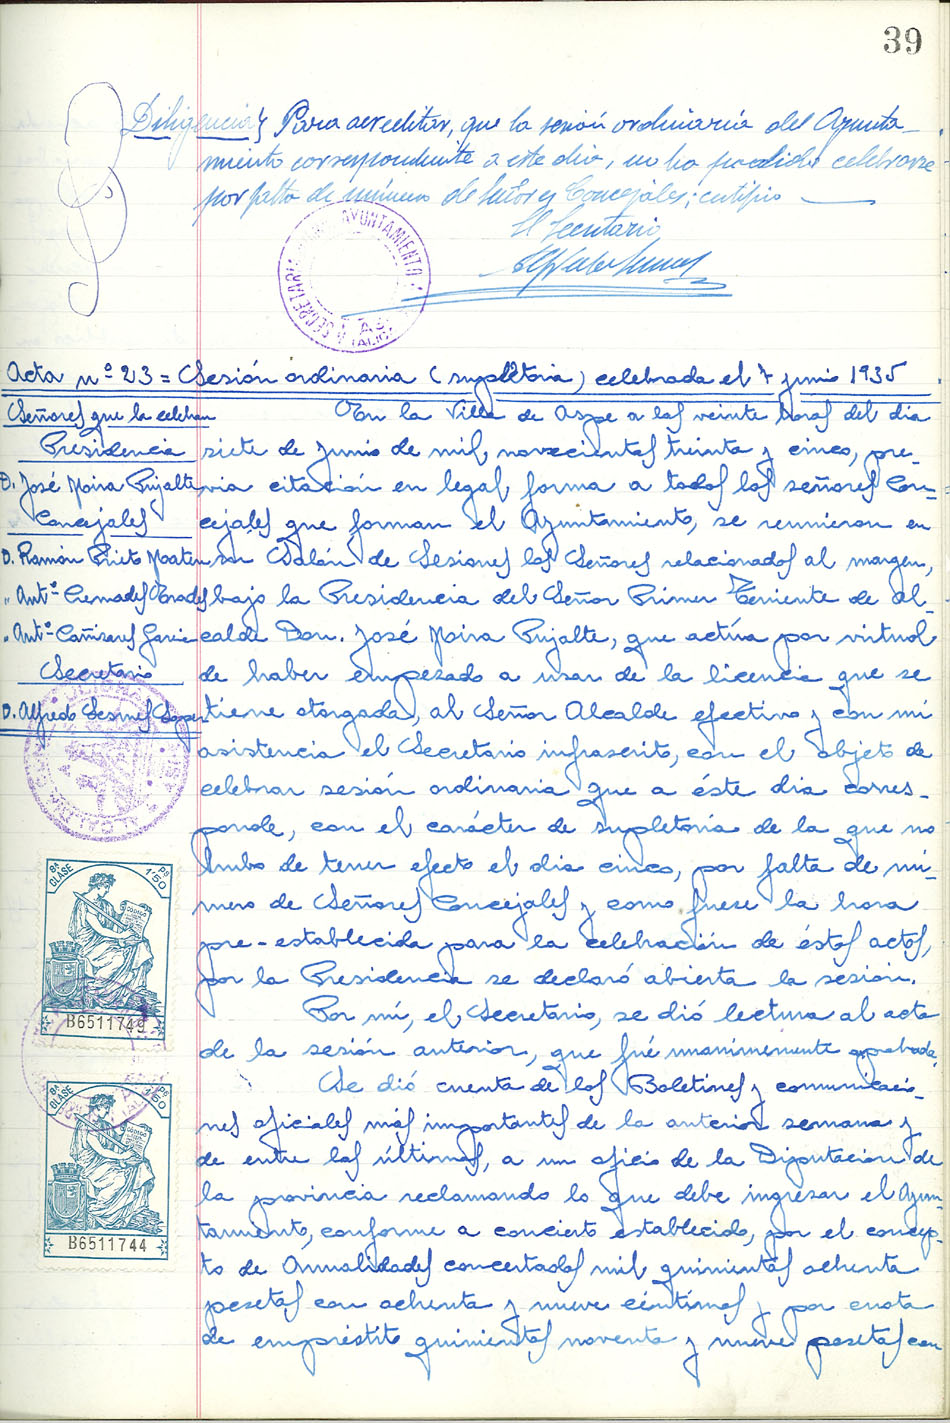 39
Diligencia} Para acreditar, que la sesión ordinaria del Ayunta-
miento correspondiente a este dia, no ha podido celebrarse
por falta de número de Señores Concejales; certifico
El Secretario
SECRETARIA AYUNTAMIENTO
Acta nº 23 = Sesión ordinaria (supletoria) celebrada el 7 junio 1935
Señores que la celebran
Presidencia
D. José Moira Pujalte
Concejales
D. Ramón Prieto
" Antº Cremades
" Antº Cañizares Garcia
Secretario
D. Alfredo
En la Villa de Aspe a las veinte horas del dia
siete de junio de mil novecientos treinta y cinco, pre-
via citación en legal forma a todos los señores Con-
cejales que forman el Ayuntamiento, se reunieron en
su Salón de Sesiones los Señores relacionados al margen,
bajo la Presidencia del Señor Primer Teniente de Al-
calde Don José Moira Pujalte, que actúa por virtud
de haber empezado a usar de la licencia que se
tiene otorgada, al Señor Alcalde efectivo y con mi
asistencia el Secretario infrascrito, con el objeto de
celebrar sesión ordinaria que a éste dia corres-
ponde, con el carácter de supletoria de la que no
hubo de tener efecto el dia cinco, por falta de nú-
mero de Señores Concejales y como fuese la hora
pre-establecida para la celebración de éstos actos,
por la Presidencia se declaró abierta la sesión.
Por mí, el Secretario, se dió lectura al acta
de la sesión anterior, que fué unánimemente aprobada.
Se dió cuenta de los Boletines y comunicacio-
nes oficiales más importantes de la anterior semana y
de entre las últimas, a un oficio de la Diputación de
la provincia reclamando lo que debe ingresar el Ayun-
tamiento, conforme a concierto establecido, por el concep-
to de Anualidades concertadas mil quinientas ochenta
pesetas con ochenta y nueve céntimos y por cuota
de empréstito quinientas noventa y nueve pesetas con
8ª CLASE
1'50 Ps
CODIGO
B6511749
8ª CLASE
1'50 Ps
CODIGO
B6511744